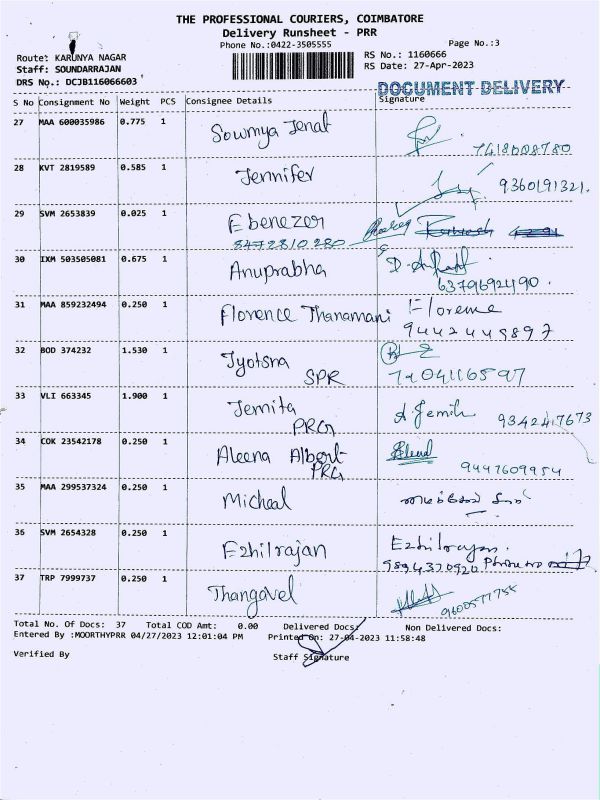 THE PROFESSIONAL COURIERS, COIMBATORE
Delivery Runsheet - PRR
Phone No.:0422-3505555
Page No.:3
Route: KARUNYA NAGAR
RS No.: 1160666
Staff: SOUNDARRAJAN
RS Date: 27-Apr-2023
DRS No.: DCJB116066603
DOCUMENT DELIVERY
S No Consignment No Weight PCS Consignee Details Signature
27 MAA 600035986 0.775 1 Sowmya Jenat
7418608780
28 KVT 2819589 0.585 1 Jennifer
9360191321.
29 SVM 2653839 0.025 1 Ebenezer
8472810280
30 IXM 503505081 0.675 1 Anuprabha
6379692490.
31 MAA 859232494 0.250 1 Florence Thanamani
9442445897
32 BOD 374232 1.530 1 Jyotsna
SPR 7904116597
33 VLI 663345 1.900 1 Jemita
PRG 9342417673
34 COK 23542178 0.250 1 Aleena Albert
PRG 9447609954
35 MAA 299537324 0.250 1 Micheal
36 SVM 2654328 0.250 1 Ezhilrajan Ezhilrajan.
9894370920 Phone no
37 TRP 7999737 0.250 1 Thangavel
9600577755
Total No. Of Docs: 37 Total COD Amt: 0.00 Delivered Docs: Non Delivered Docs:
Entered By :MOORTHYPRR 04/27/2023 12:01:04 PM Printed On: 27-04-2023 11:58:48
Verified By Staff Signature